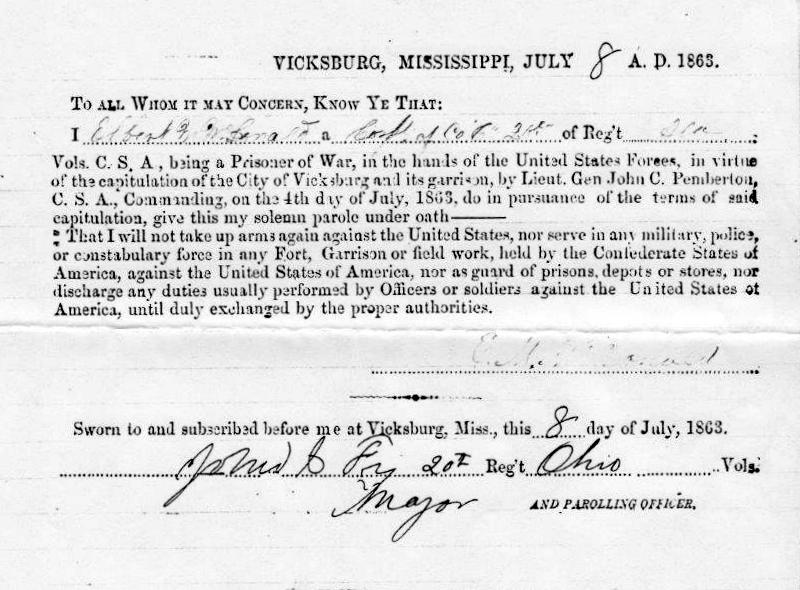 VICKSBURG, MISSISSIPPI, JULY 8 A. D. 1863.
TO ALL WHOM IT MAY CONCERN, KNOW YE THAT:
I Elbert a of Co 20th of Reg't
Vols. C. S. A., being a Prisoner of War, in the hands of the United States Forces, in virtue
of the capitulation of the City of Vicksburg and its garrison, by Lieut. Gen John C. Pemberton,
C. S. A., Commanding, on the 4th day of July, 1863, do in pursuance of the terms of said
capitulation, give this my solemn parole under oath———
That I will not take up arms again against the United States, nor serve in any military, police,
or constabulary force in any Fort, Garrison or field work, held by the Confederate States of
America, against the United States of America, nor as guard of prisons, depots or stores, nor
discharge any duties usually performed by Officers or soldiers against the United States of
America, until duly exchanged by the proper authorities.
E. M.
Sworn to and subscribed before me at Vicksburg, Miss., this 8 day of July, 1863.
John C Fry 20th Reg't Ohio Vols.
Major AND PAROLLING OFFICER.